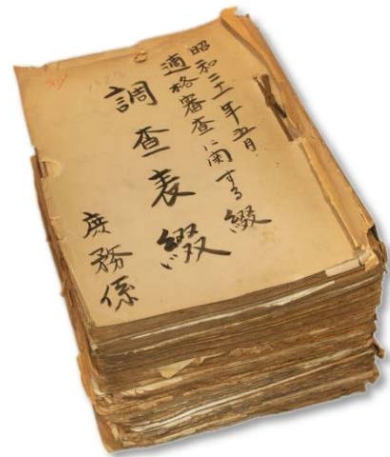 昭和三十一年五月
適格審査に関する綴
調査表綴
庶務係